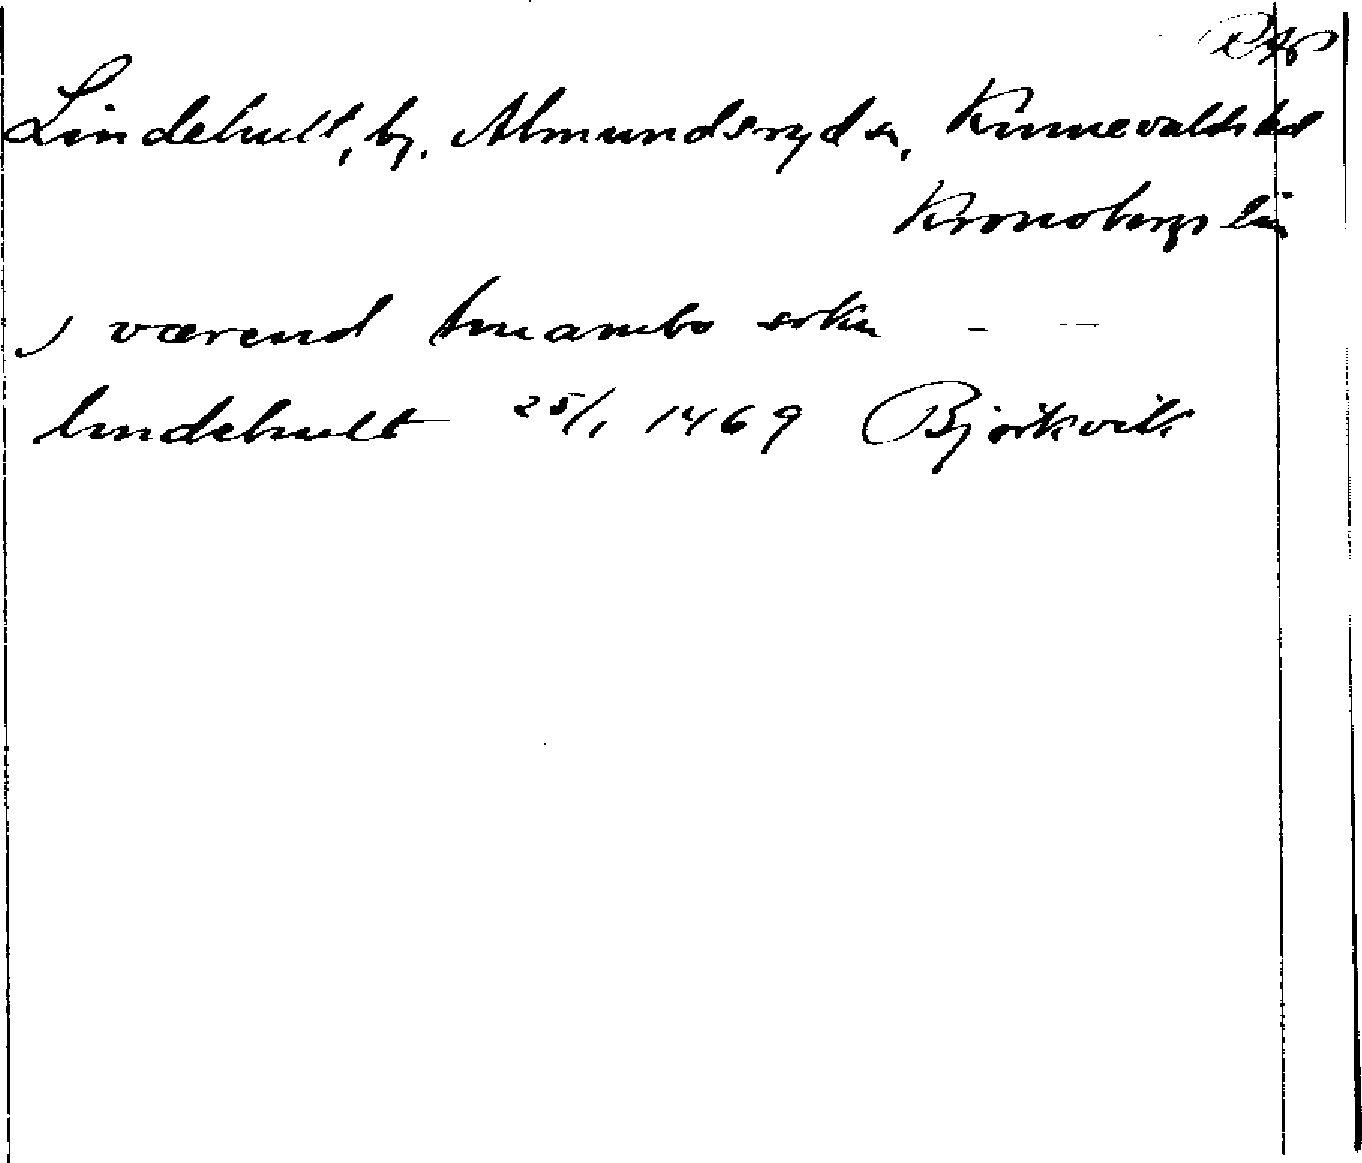 Lindehult, by, Almundsryd sn, Kinnevalds hd
Kronobergs län
j værend sokn - -
lindehult 25/1 1469 Björkvik